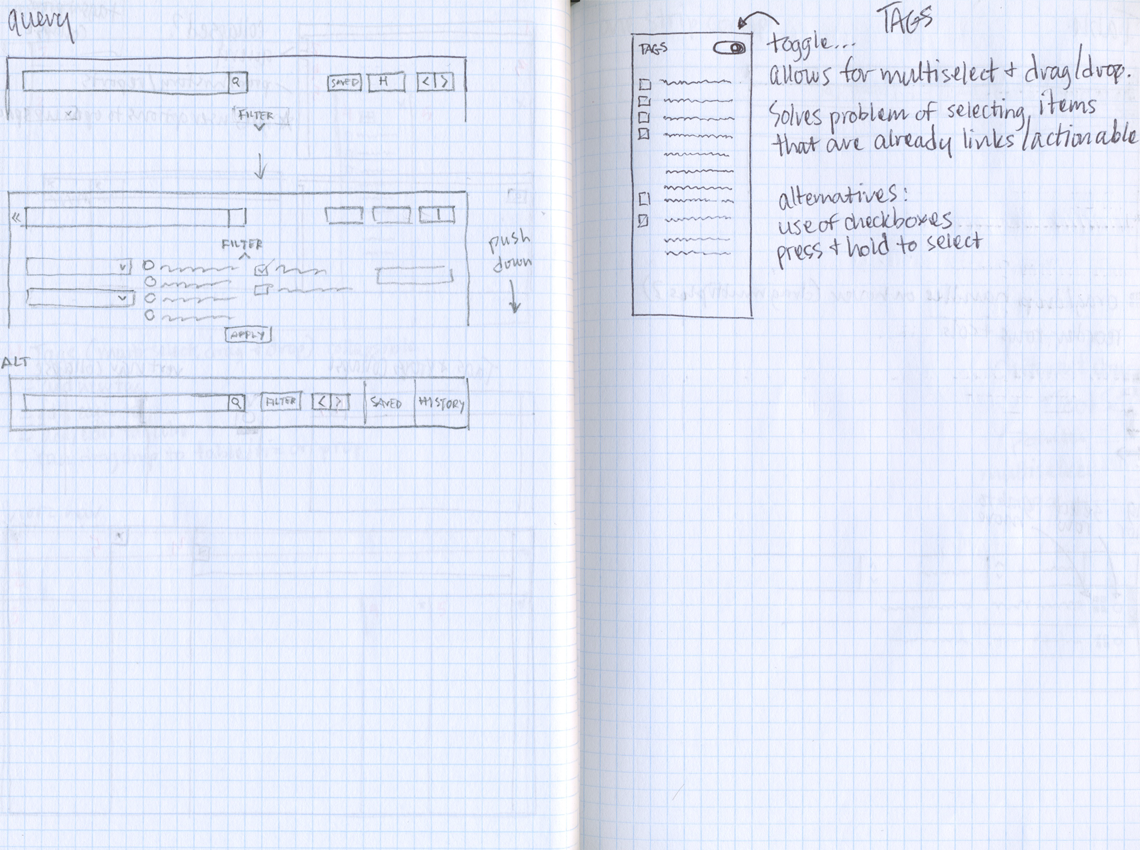 query
SAVED H < | >
FILTER
«
FILTER
push
down
APPLY
ALT
FILTER < | > SAVED HISTORY
TAGS
TAGS
toggle...
allows for multiselect + drag/drop.
Solves problem of selecting items
that are already links/actionable
alternatives:
use of checkboxes
press + hold to select